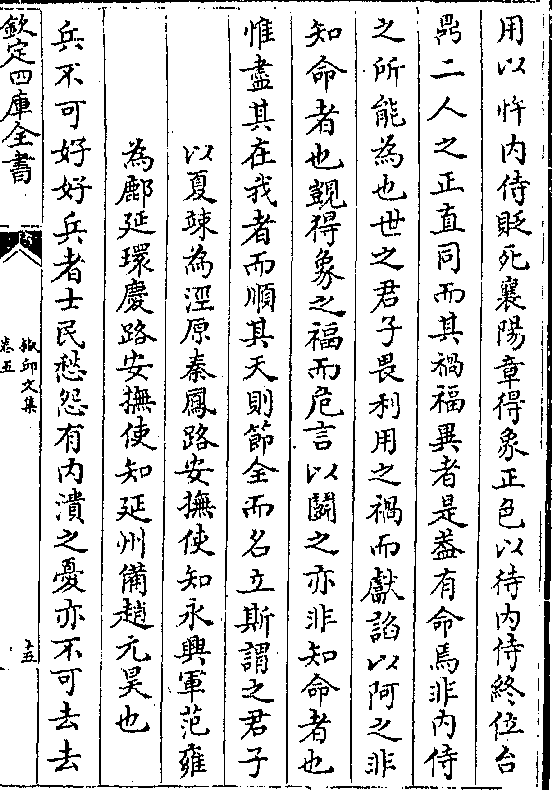 用以忤内侍貶死襄陽章得象正色以待内侍終位台
鼎二人之正直同而其禍福異者是葢有命焉非内侍
之所能為也世之君子畏利用之禍而獻諂以阿之非
知命者也覬得象之福而危言以鬭之亦非知命者也
惟盡其在我者而順其天則節全而名立斯謂之君子
以夏竦為涇原秦鳳路安撫使知永興軍范雍
為鄜延環慶路安撫使知延州備趙元昊也
兵不可好好兵者士民愁怨有内潰之憂亦不可去去
欽定四庫全書
邱文集
卷五
十五